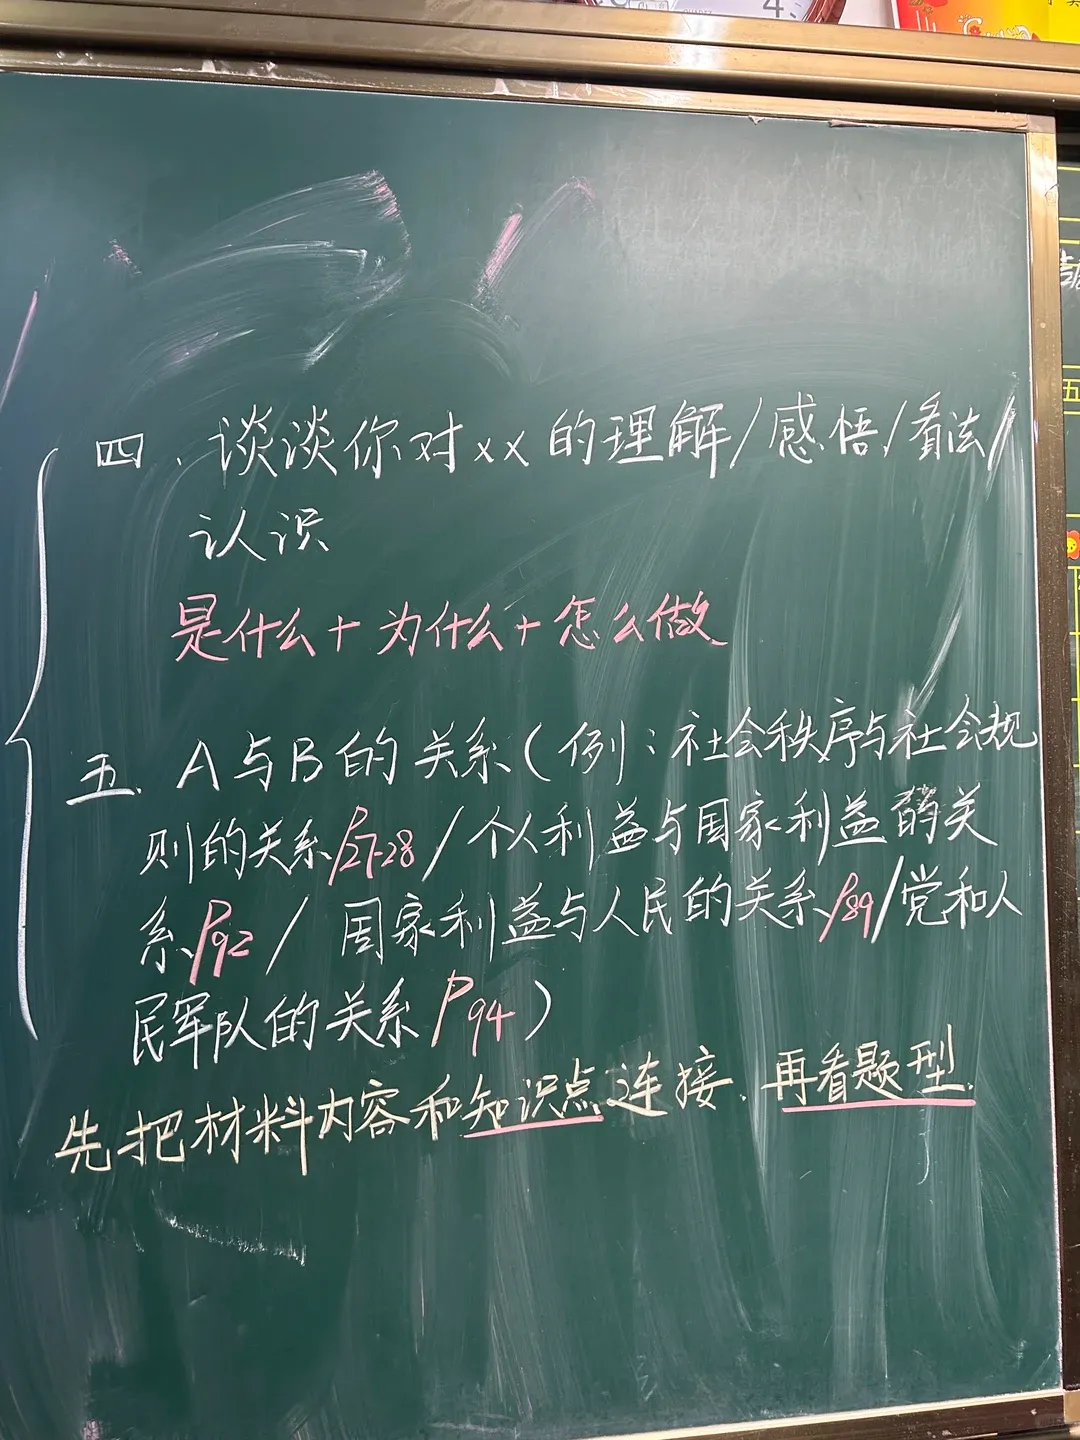 4
四、谈谈你对xx的理解/感悟/看法/
认识
是什么+为什么+怎么做
五、A与B的关系(例:社会秩序与社会规
则的关系P27-28/个人利益与国家利益的关
系P92/国家利益与人民的关系P89/党和人
民军队的关系P94)
先把材料内容和知识点连接、再看题型.
五